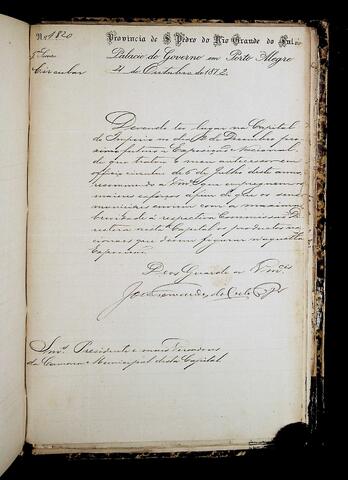 Nº 1820
Provincia de S. Pedro do Rio Grande do Sul.
Palacio do Governo em Porto Alegre
21 de Outubro de 1872
Circular
Devendo ter lugar na Capital
do Imperio no dia 1º de Dezembro pro
ximo futuro a Exposição Nacional,
de que tratou o meu antecessor em
officio circular de 6 de Julho deste anno,
recommendo a Vmces que empreguem os
maiores esforços afim de que os seus
municipes enviem com a maxima
brevidade á respectiva Commissão Di
rectora nesta Capital os productos na
cionaes que devem figurar naquella
Exposição.
Deos Guarde a Vmces
José Fernandes da Costa
Snrs. Presidente e mais Vereadores
da Camara Municipal desta Capital